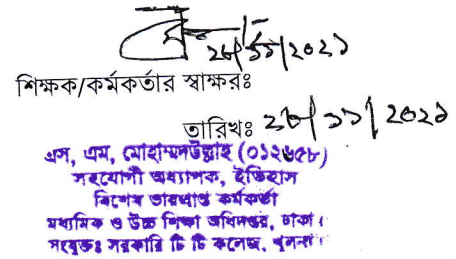 ২৮/১১/২০২১
শিক্ষক/কর্মকর্তার স্বাক্ষরঃ
তারিখঃ ২৮/১১/২০২১
এস, এম, মোহাম্মদউল্লাহ (০১২৬৫৮)
সহযোগী অধ্যাপক, ইতিহাস
বিশেষ ভারপ্রাপ্ত কর্মকর্তা
মাধ্যমিক ও উচ্চ শিক্ষা অধিদপ্তর, ঢাকা।
সংযুক্তঃ সরকারি টি টি কলেজ, খুলনা।